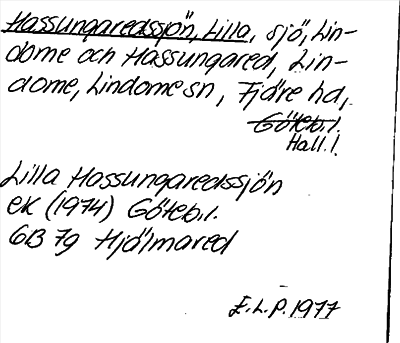 Hassungaredssjön, Lilla, sjö, Lin-
dome och Hassungared, Lin-
dome, Lindome sn, Fjäre hd,
Göteb.l.
Hall.l.
Lilla Hassungaredssjön
ek (1974) Göteb.l.
6B 7g Hjälmared
E.L.P. 1977